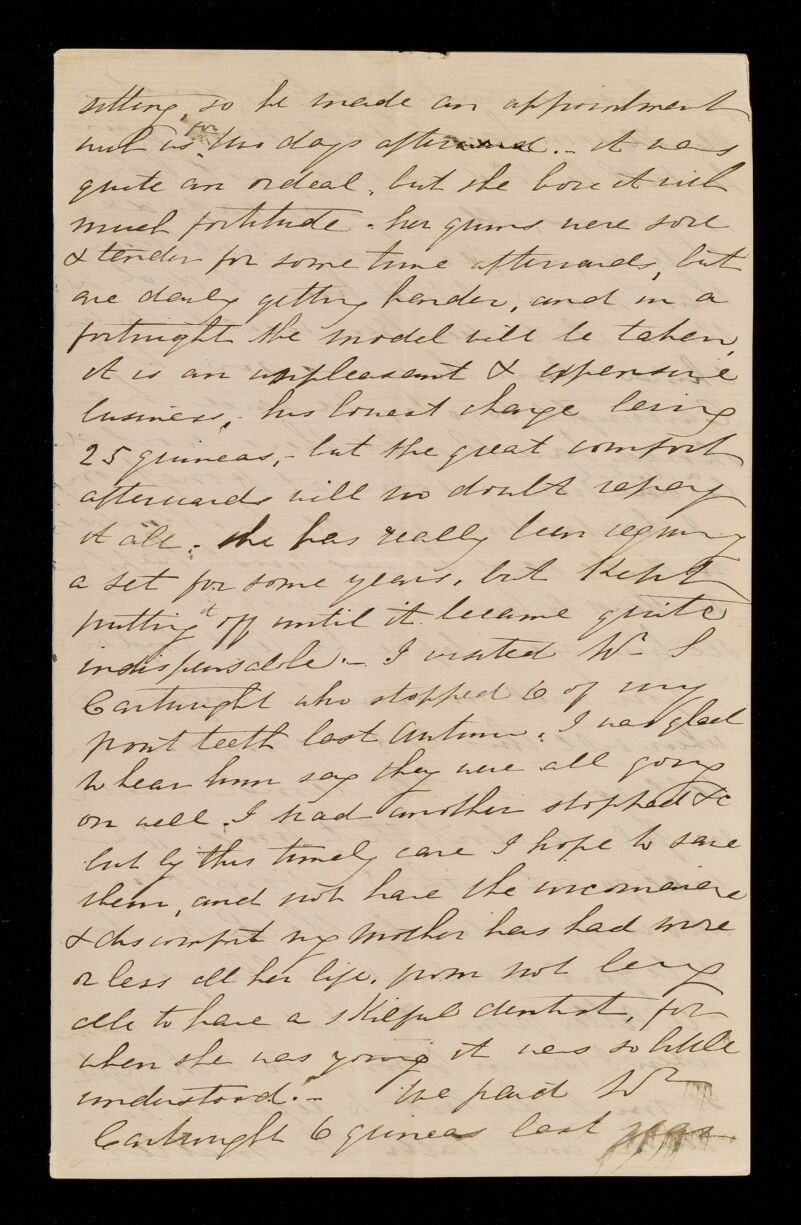 sitting, so he made an appointment
with us for two days after. - it was
quite an ordeal, but she bore it with
much fortitude - her gums were sore
& tender for some time afterwards, but
are daily getting harder, and in a
fortnight the model will be taken,
it is an unpleasant & expensive
business, his lowest charge being
25 guineas, - but the great comfort
afterwards will no doubt repay
it all. she has really been requiring
a set for some years, but kept
putting it off until it became quite
indispensable. - I visited Mr S
Cartwright who stopped 6 of my
front teeth last Autumn. I was glad
to hear him say they were all going
on well. I had another stopped &c
but by this timely care I hope to save
them, and not have the inconvenience
& discomfort my Mother has had more
or less all her life, from not being
able to have a skilful dentist, for
when she was young it was so little
understood. - We paid Mr
Cartwright 6 guineas last